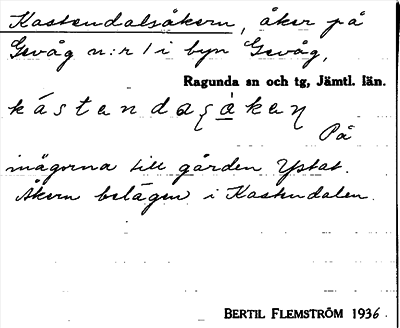 Kastendalsåkern, åker på
Gevåg n:r 1 i byn Gevåg,
Ragunda sn och tg, Jämtl. län.
På
inägorna till gården Ystat.
Åkern belägen i Kastendalen.
BERTIL FLEMSTRÖM 1936.